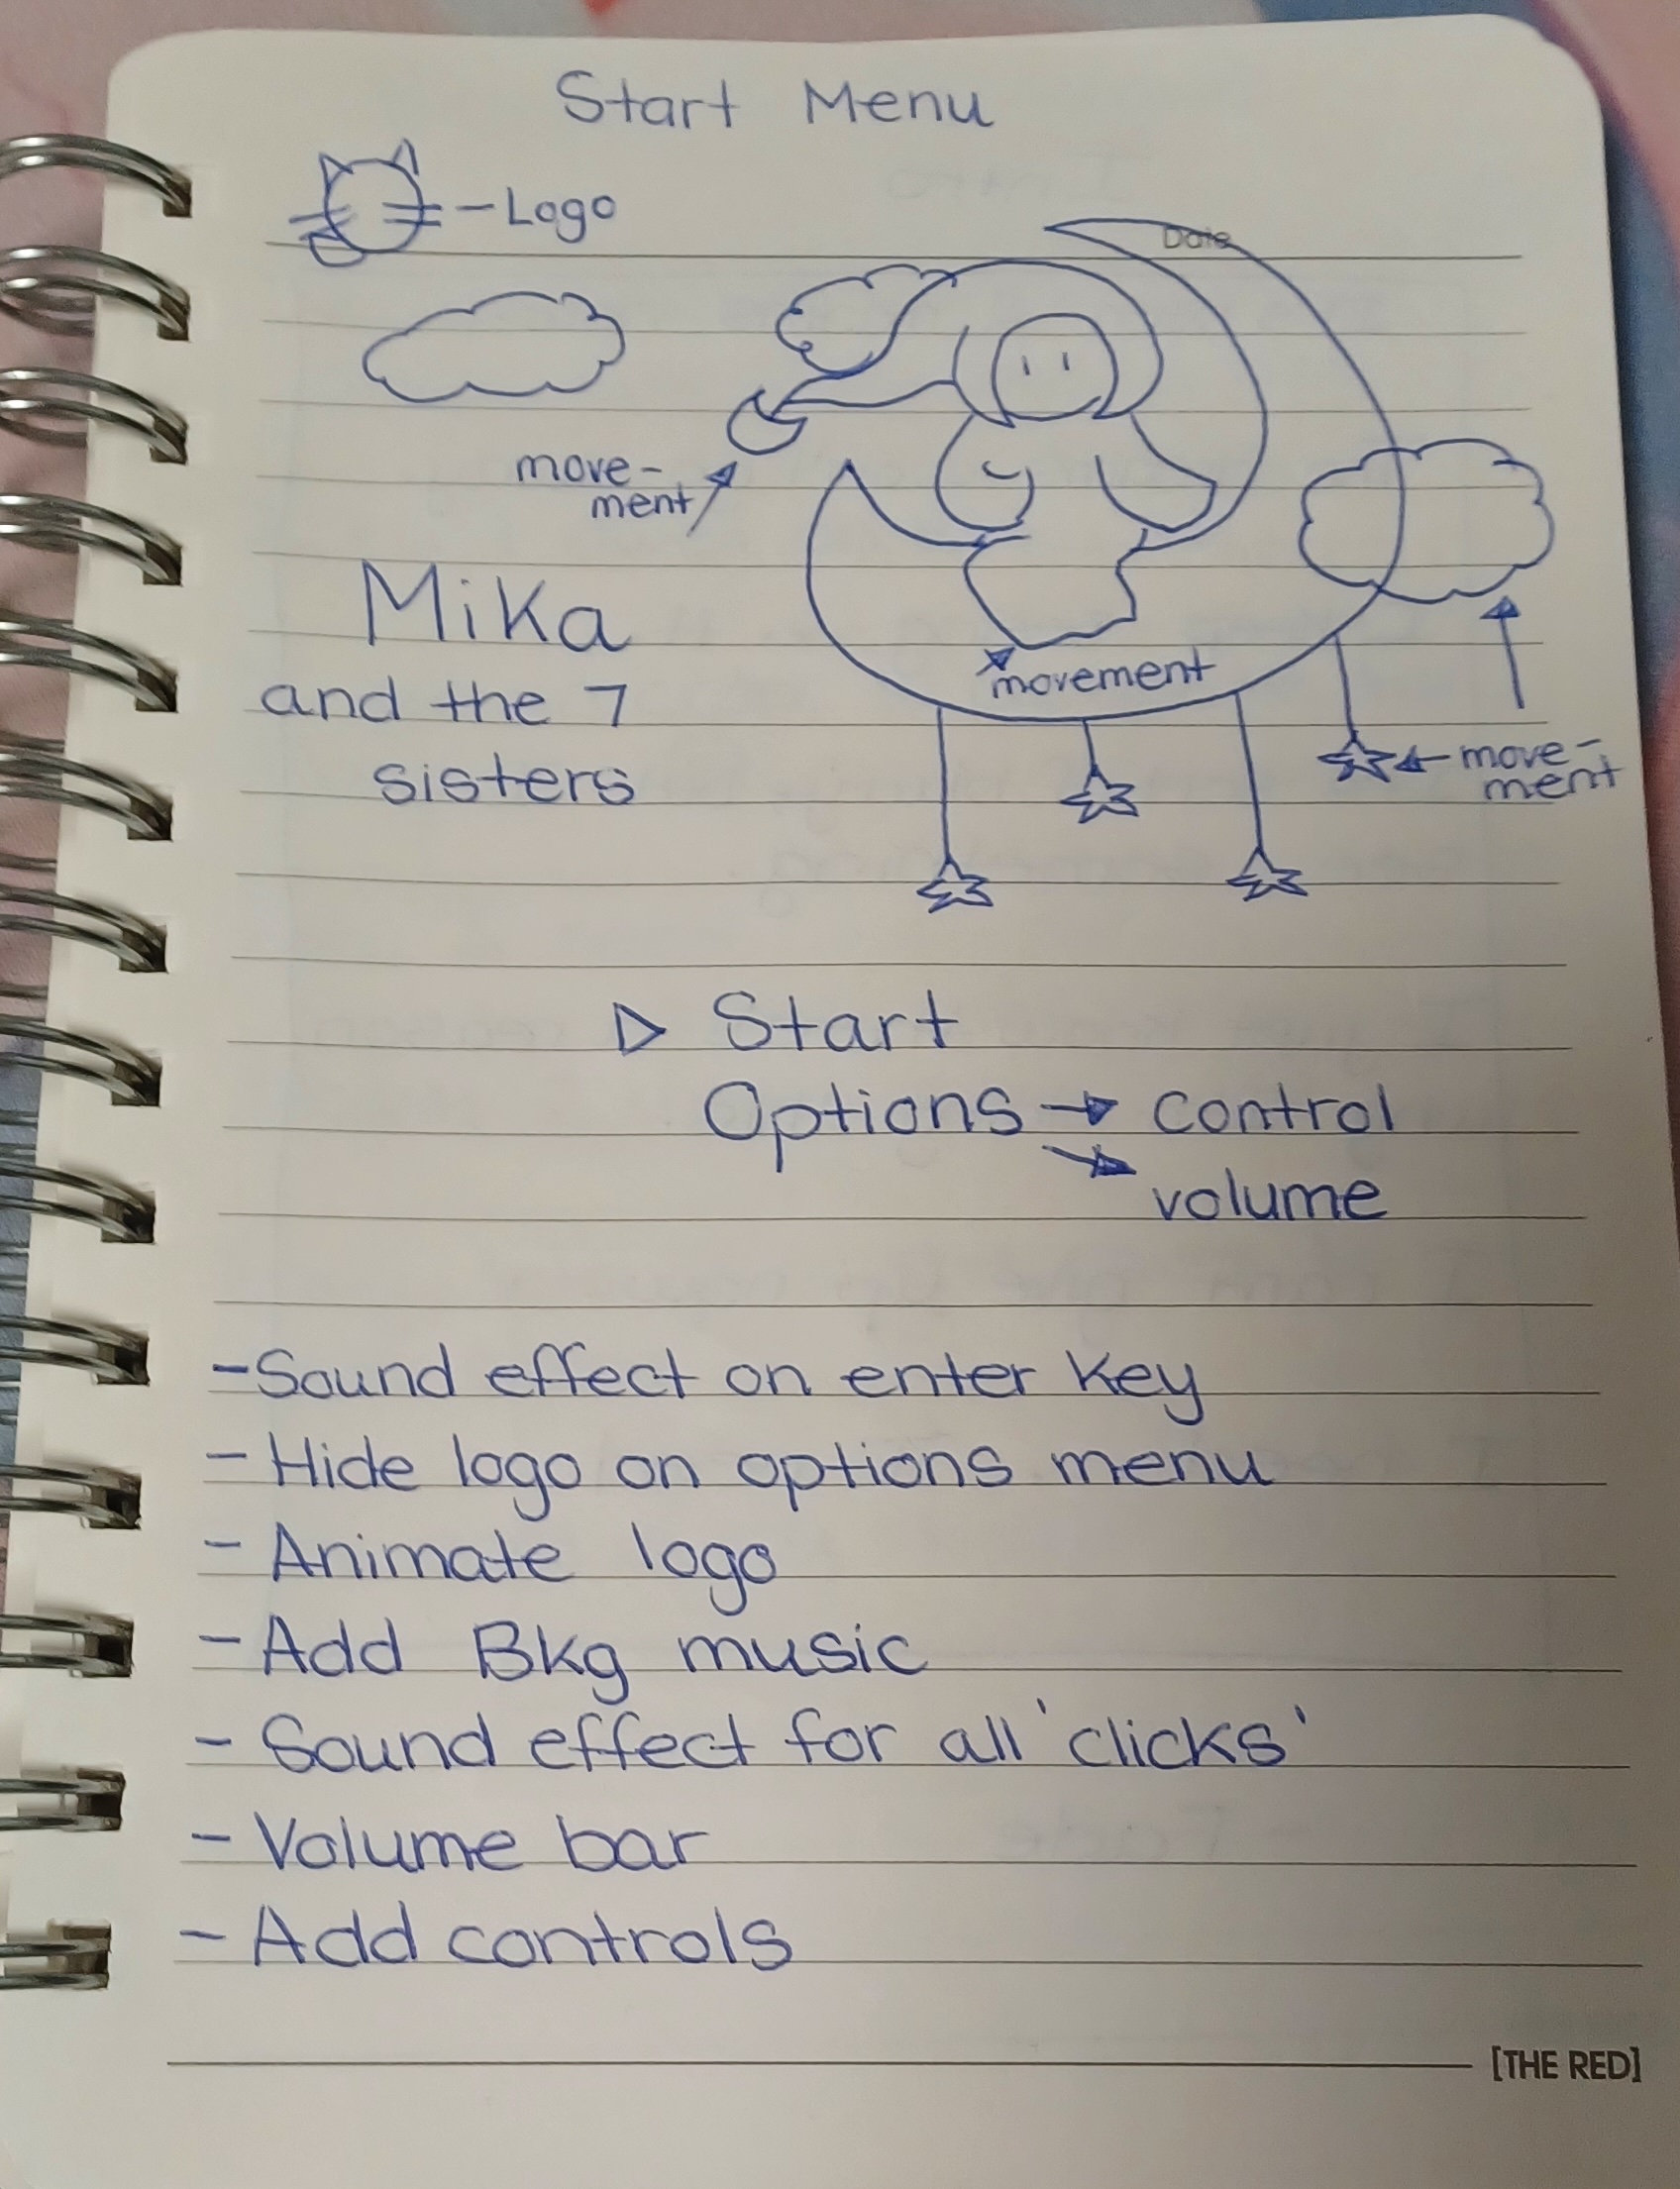 Start Menu
- Logo
Date
move-
ment
Mika
and the 7
sisters
movement
move-
ment
Start
Options → control
volume
- Sound effect on enter key
- Hide logo on options menu
- Animate logo
- Add Bkg music
- Sound effect for all 'clicks'
- Volume bar
- Add controls
[THE RED]